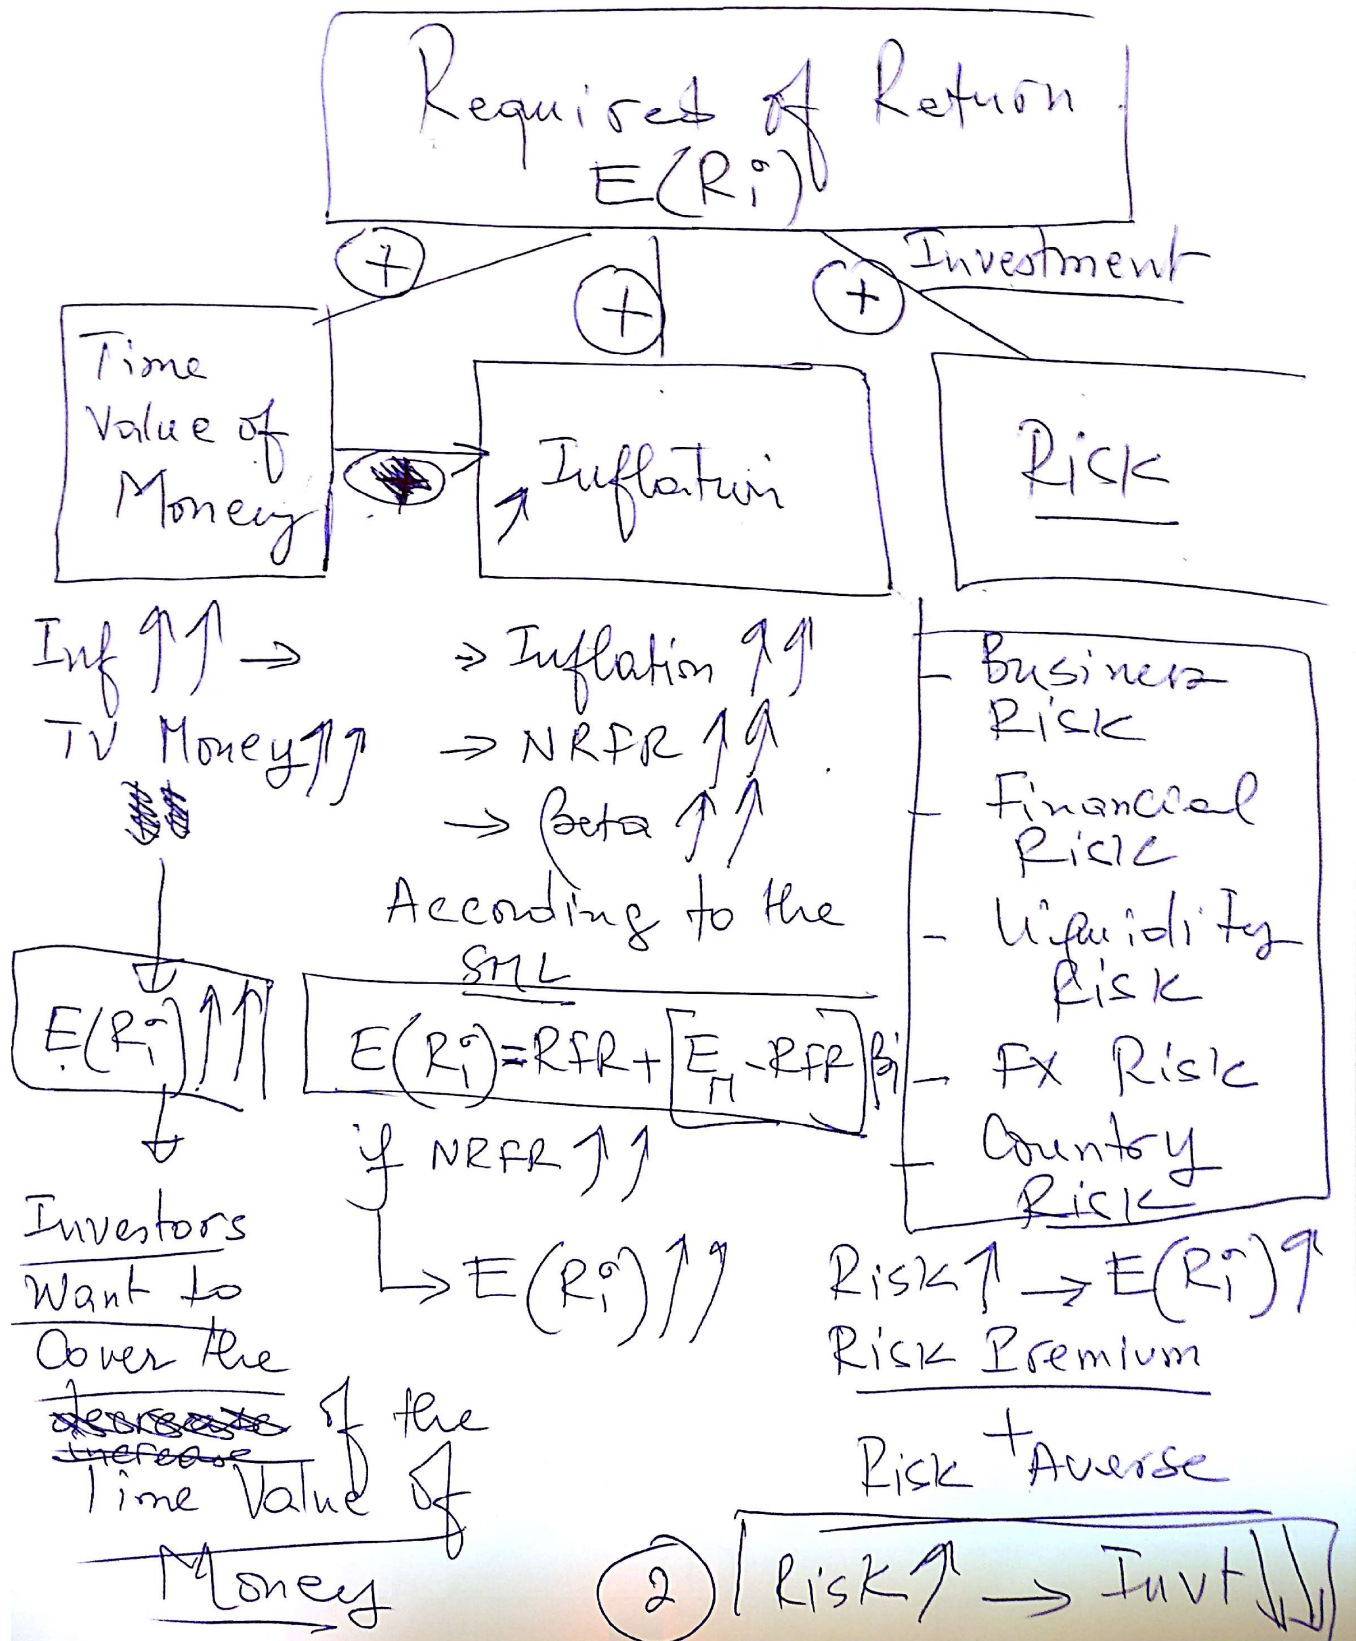 Required of Return
E(Ri)
+
+
+
Investment
Time
Value of
Money
Inflation
↑
Risk
Inf ↑↑ →
TV Money ↑↑
E(Ri) ↑↑
Investors
Want to
Cover the
decrease of the
increase
Time Value of
Money
→ Inflation ↑↑
→ NRFR ↑↑
→ Beta ↑↑
According to the
SML
E(Ri) = RFR + [E_M - RFR] βi
if NRFR ↑↑
→ E(Ri) ↑↑
- Business
Risk
- Financial
Risk
- Liquidity
Risk
- FX Risk
- Country
Risk
Risk ↑ → E(Ri) ↑
Risk Premium
+
Risk Averse
2
Risk ↑ → Invt ↓↓